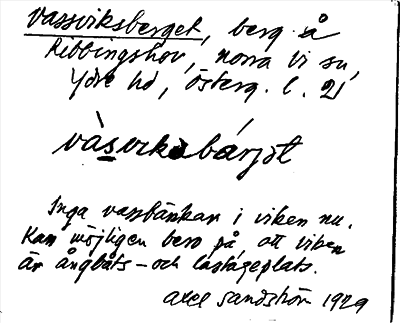 Vassviksberget, berg å
Ribbingshov, norra Vi sn,
Ydre hd, Österg. l. 21
vàsviksbárjət
Inga vassbänkar i viken nu.
Kan möjligen bero på, att viken
är ångbåts- och lastageplats.
Axel Sandström 1929